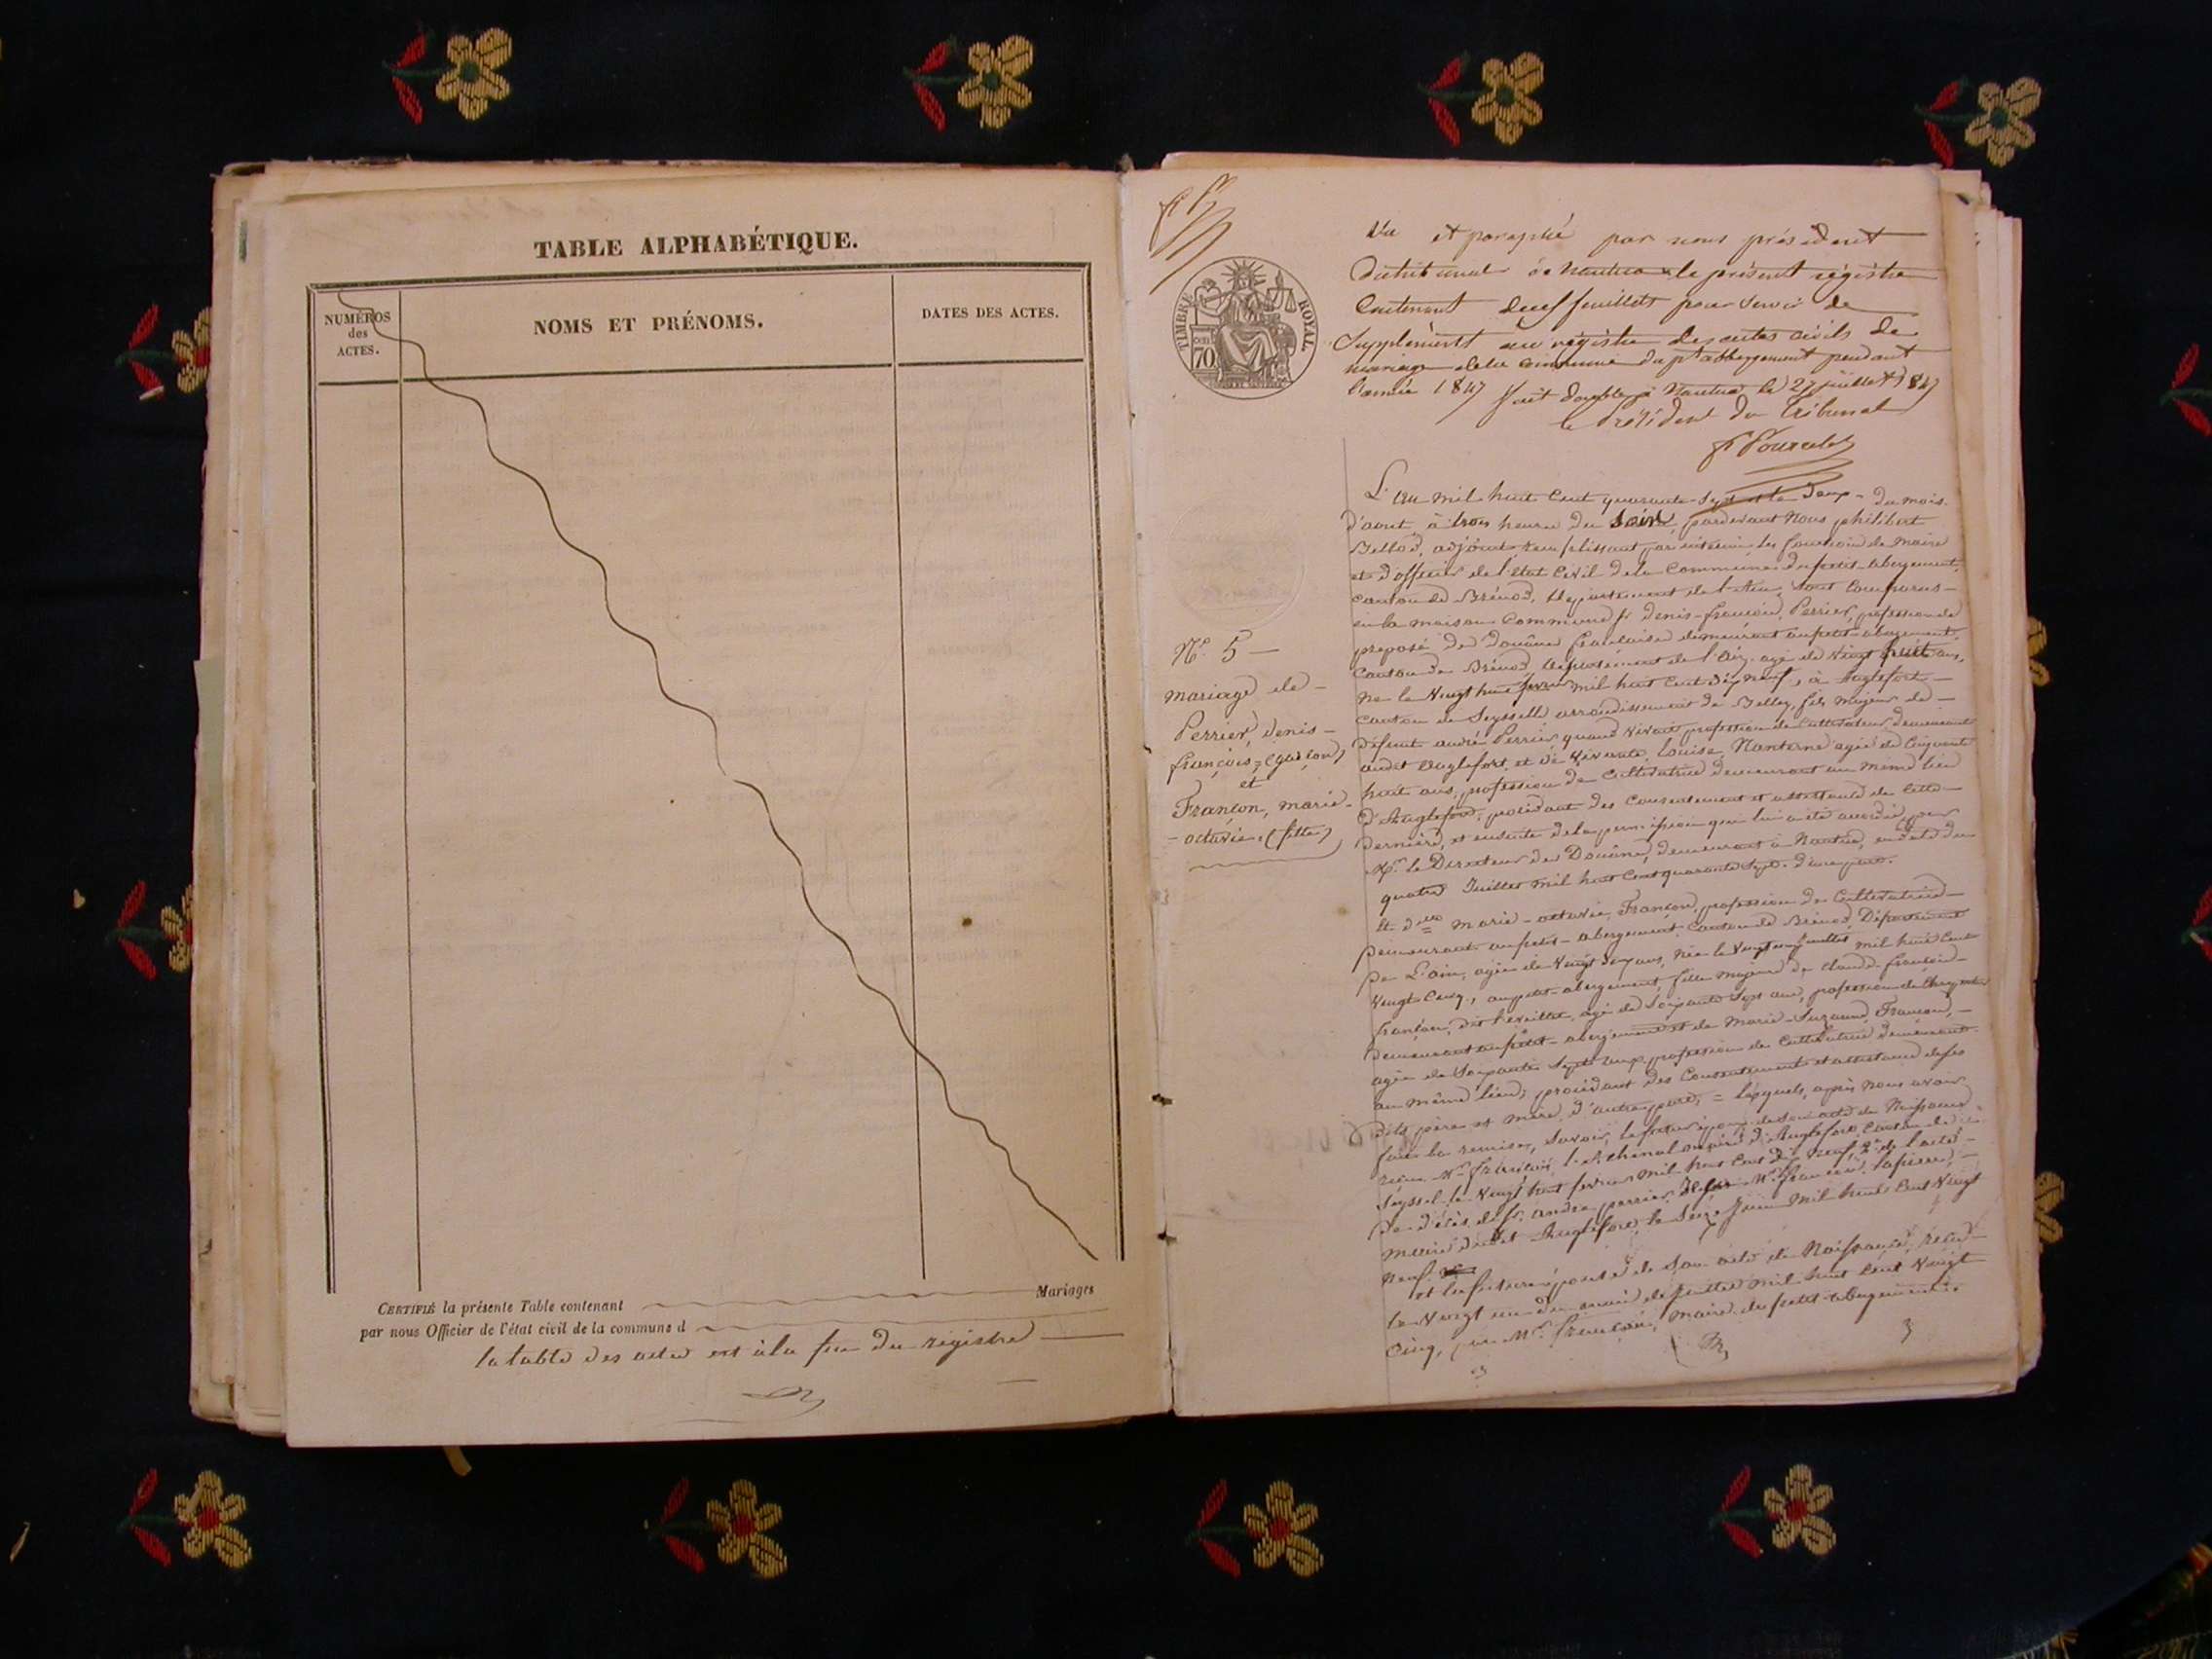 TABLE ALPHABÉTIQUE.
NUMÉROS
des
ACTES.
NOMS ET PRÉNOMS.
DATES DES ACTES.
CERTIFIÉ la présente Table contenant Mariages
par nous Officier de l'état civil de la commune d
la table des actes est à la fin du registre
Vu et paraphé par nous président
du tribunal de Nantua le présent régistre
Contenant deux feuillets pour servir de
Supplément au régistre des actes civils de
mariage de la commune du pt abbergement pendant
l'année 1847 fait double à Nantua le 27 juillet 1847
le Président du Tribunal
TIMBRE ROYAL
70
N° 5
mariage de
Perrier, denis-
françois, (garçon)
et
Françon, marie-
-octavie, (fille)
L'an mil huit Cent quarante-Sept et le deux du mois
d'aout à trois heures du Soir, pardevant Nous philibert
Belloд, adjoint, remplissant par intérim les fonctions de Maire
et d'officier de l'état Civil de la Commune du petit-abergement,
Canton de Brénod, département de l'Ain, sont comparus
en la maison Commune sr denis-françois Perrier, profession de
préposé des Douanes françaises demeurant au petit-abergement,
Canton de Brénod département de l'Ain, agé de Vingt huit ans,
né le Vingt huit février mil huit Cent dix neuf, à Anglefort
canton de Seyssell, arrondissement de Belley, fils majeur de
défunt andré Perrier, quand vivait profession de Cultivateur demeurant
audit Anglefort, et de vivante Louise Nanterne agée de Cinquante
huit ans, profession de Cultivatrice demeurant au même lieu
d'Anglefort, procédant des Consentement et assistance de cette
dernière, et ensuite de la permission qui lui a été accordée par
Mr. le Directeur des Douanes, demeurant à Nantua, en date du
quatre Juillet mil huit Cent quarante Sept. d'une part.
Et dlle Marie-octavie Françon, profession de Cultivatrice
demeurant au petit-abergement Canton de Brénod, Département
de L'ain, agée de Vingt deux ans, née le Vingt un juillet mil huit Cent
Vingt Cinq, au petit-abergement, fille majeure de claude-françois
françon, dit agé de Soixante Sept ans, profession de Charpentier
demeurant au petit-abergement et de Marie-Suzanne Françon,
agée de Soixante Sept ans, profession de Cultivatrice demeurant
au même lieu, procédant des Consentement et assistance de ses
dits père et mère, d'autre part; = Lesquels, après Nous avoir
fait la remise, Savoir, le futur époux de son acte de Naissance
reçu Mr. françois maire d'Anglefort Canton de
Seyssel le Vingt huit février mil huit Cent dix neuf, 2° de l'acte
de décès de sr. andré perrier Mr. francois lapierre,
maire dudit Anglefort, le Seize Juin Mil huit Cent Vingt
Neuf
et la future épouse de Son acte de Naissance, reçu
le Vingt un du mois de juillet mil huit Cent Vingt
Cinq, par Mr. françois, Maire du petit-abergement.